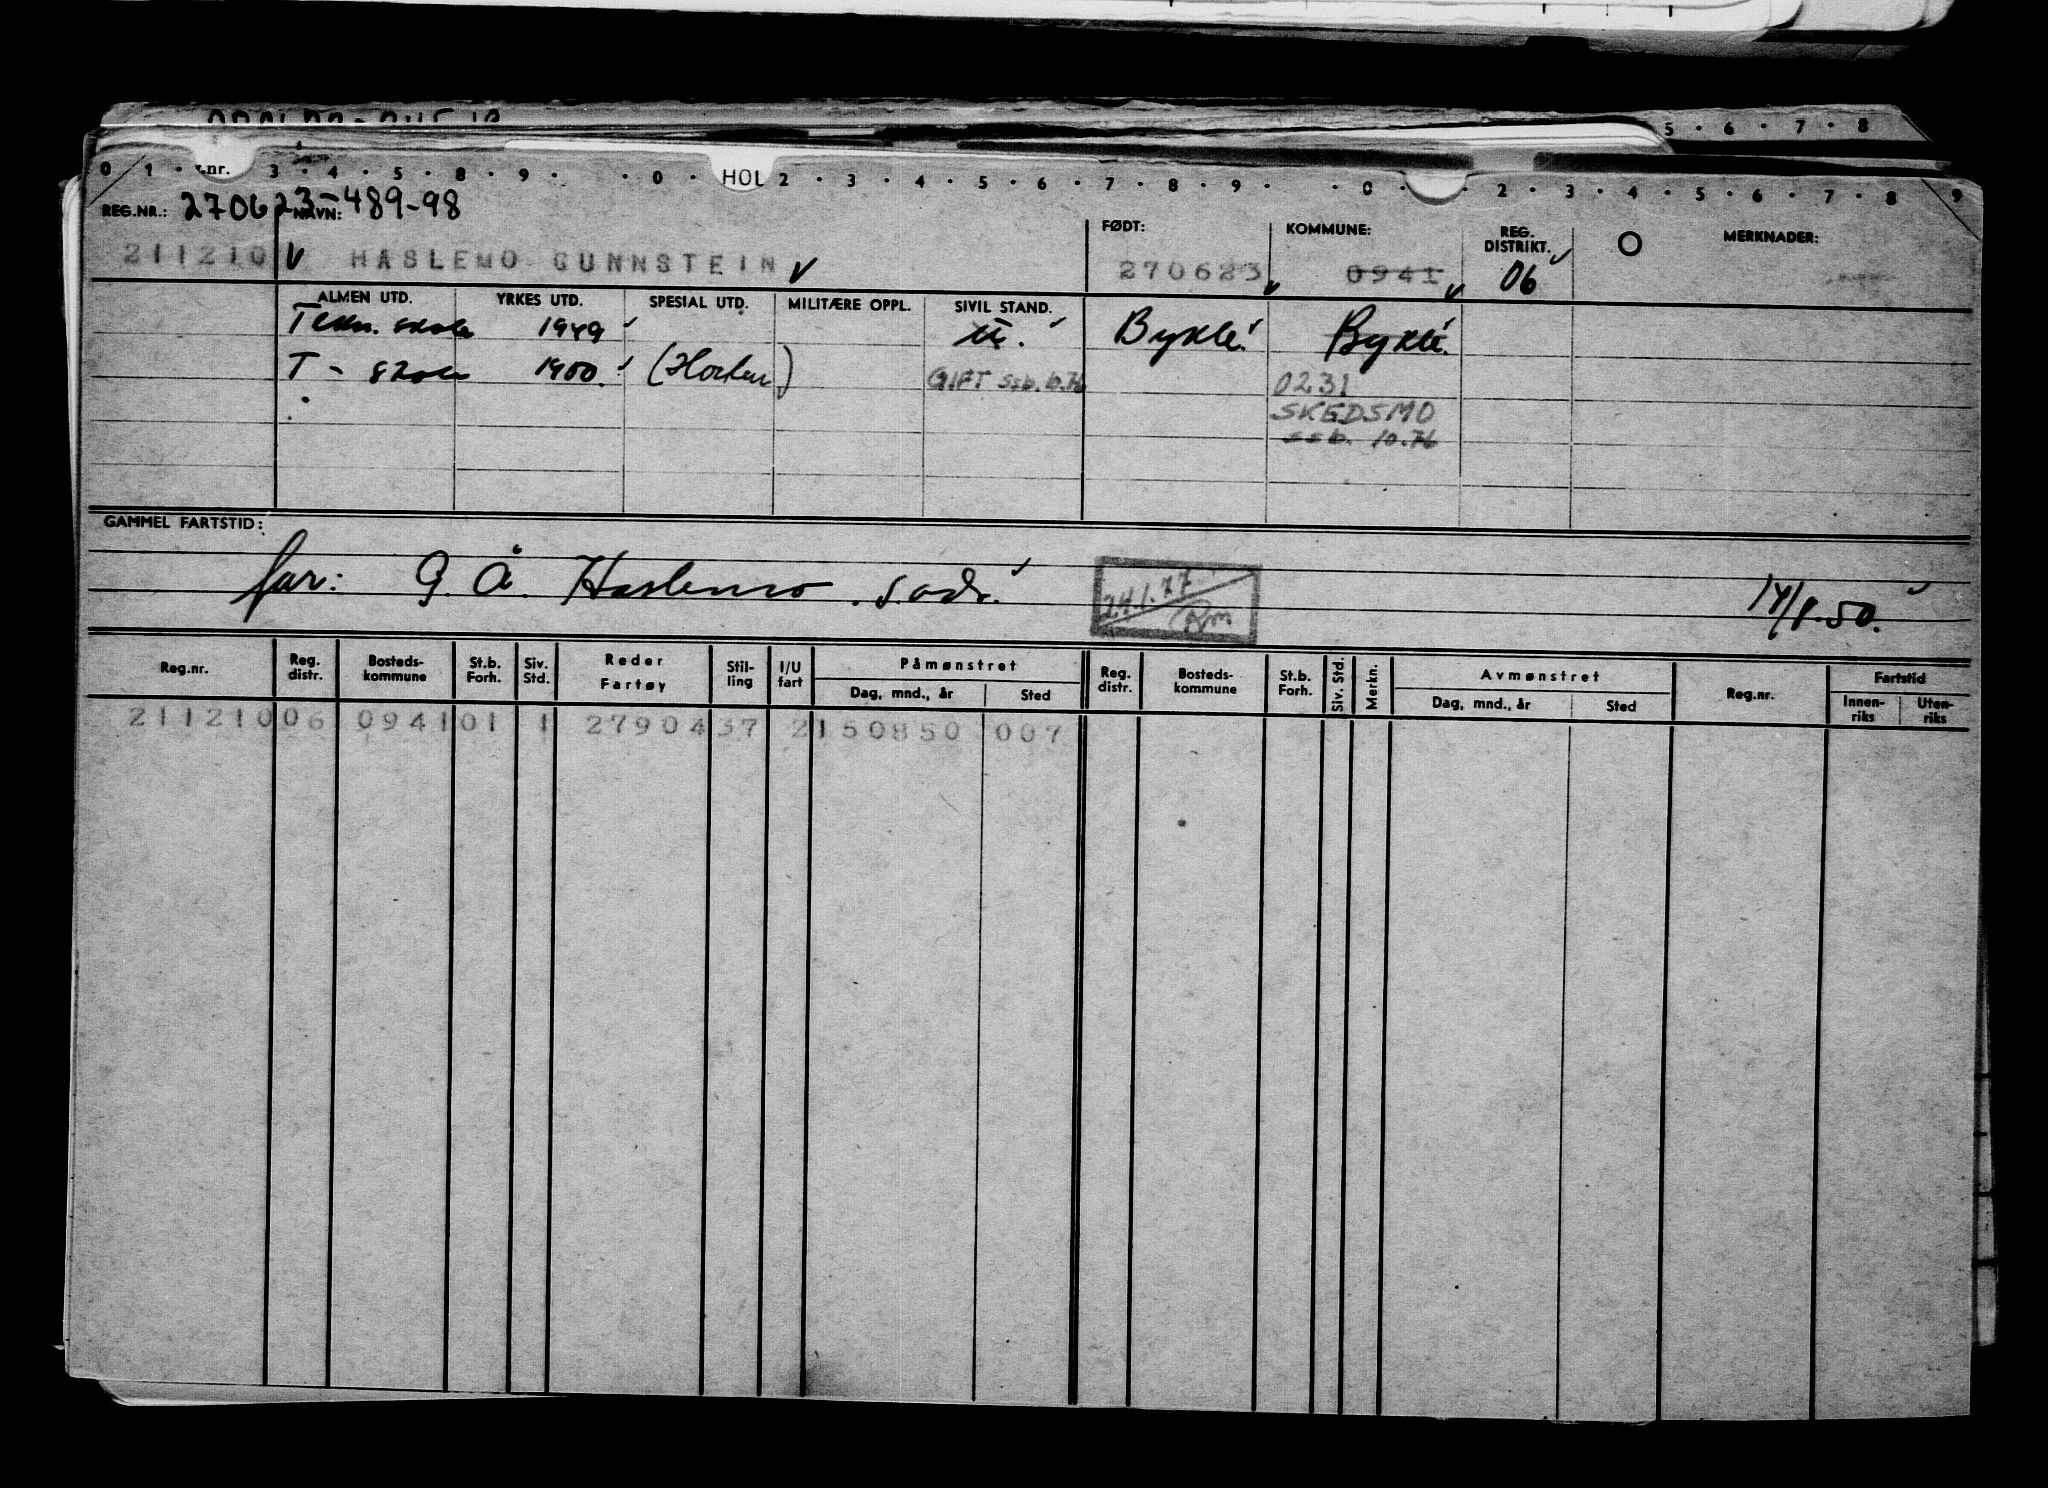 5 · 6 · 7 · 8
0 1 · r.nr. 3 · 4 · 5 · 8 · 9 · · 0 · HOL 2 · 3 · 4 · 5 · 6 · 7 · 8 · 9 · · 0 · 2 · 3 · 4 · 5 · 6 · 7 · 8 9
REG.NR.: 270623-489-98 NAVN: FØDT: KOMMUNE: REG. DISTRIKT. MERKNADER:
211210 HASLEMO GUNNSTEIN 270623 0941 06
ALMEN UTD. YRKES UTD. SPESIAL UTD. MILITÆRE OPPL. SIVIL STAND.
Tekn. skole 1949 Bykle Bykle
T - skole 1950 (Horten) GIFT ssb. 10.76 0231
SKEDSMO
ssb. 10.76
GAMMEL FARTSTID:
far: G. Å. Haslemo. 24.1.77 14/8.50.
Reg.nr. Reg. distr. Bosteds-kommune St.b. Forh. Siv. Std. Reder Fartøy Stil-ling I/U fart Påmønstret Reg. distr. Bosteds-kommune St.b. Forh. Siv. Std. Merkn. Avmønstret Reg.nr. Fartstid
Dag, mnd., år Sted Dag, mnd., år Sted Innen-riks Uten-riks
211210 06 0941 01 1 27904 37 2 150850 007